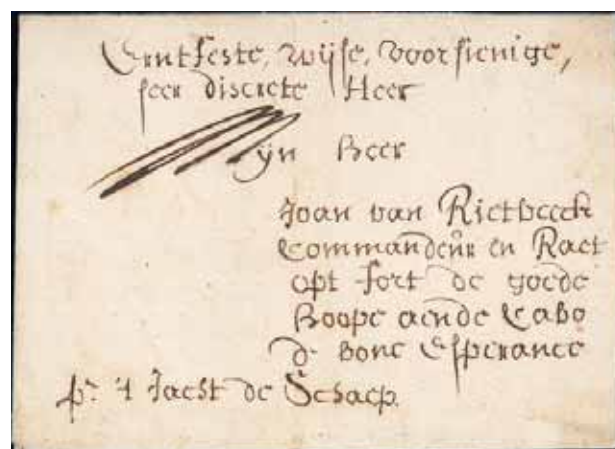 Erntfeste, wijse, voorsienige,
seer discrete Heer
Mijn Heer
Joan van Rietbeeck
Commandeur en Raet
opt fort de goede
Hoope aende Cabo
de bone Esperance
pr. 't Jacht de Schaep.